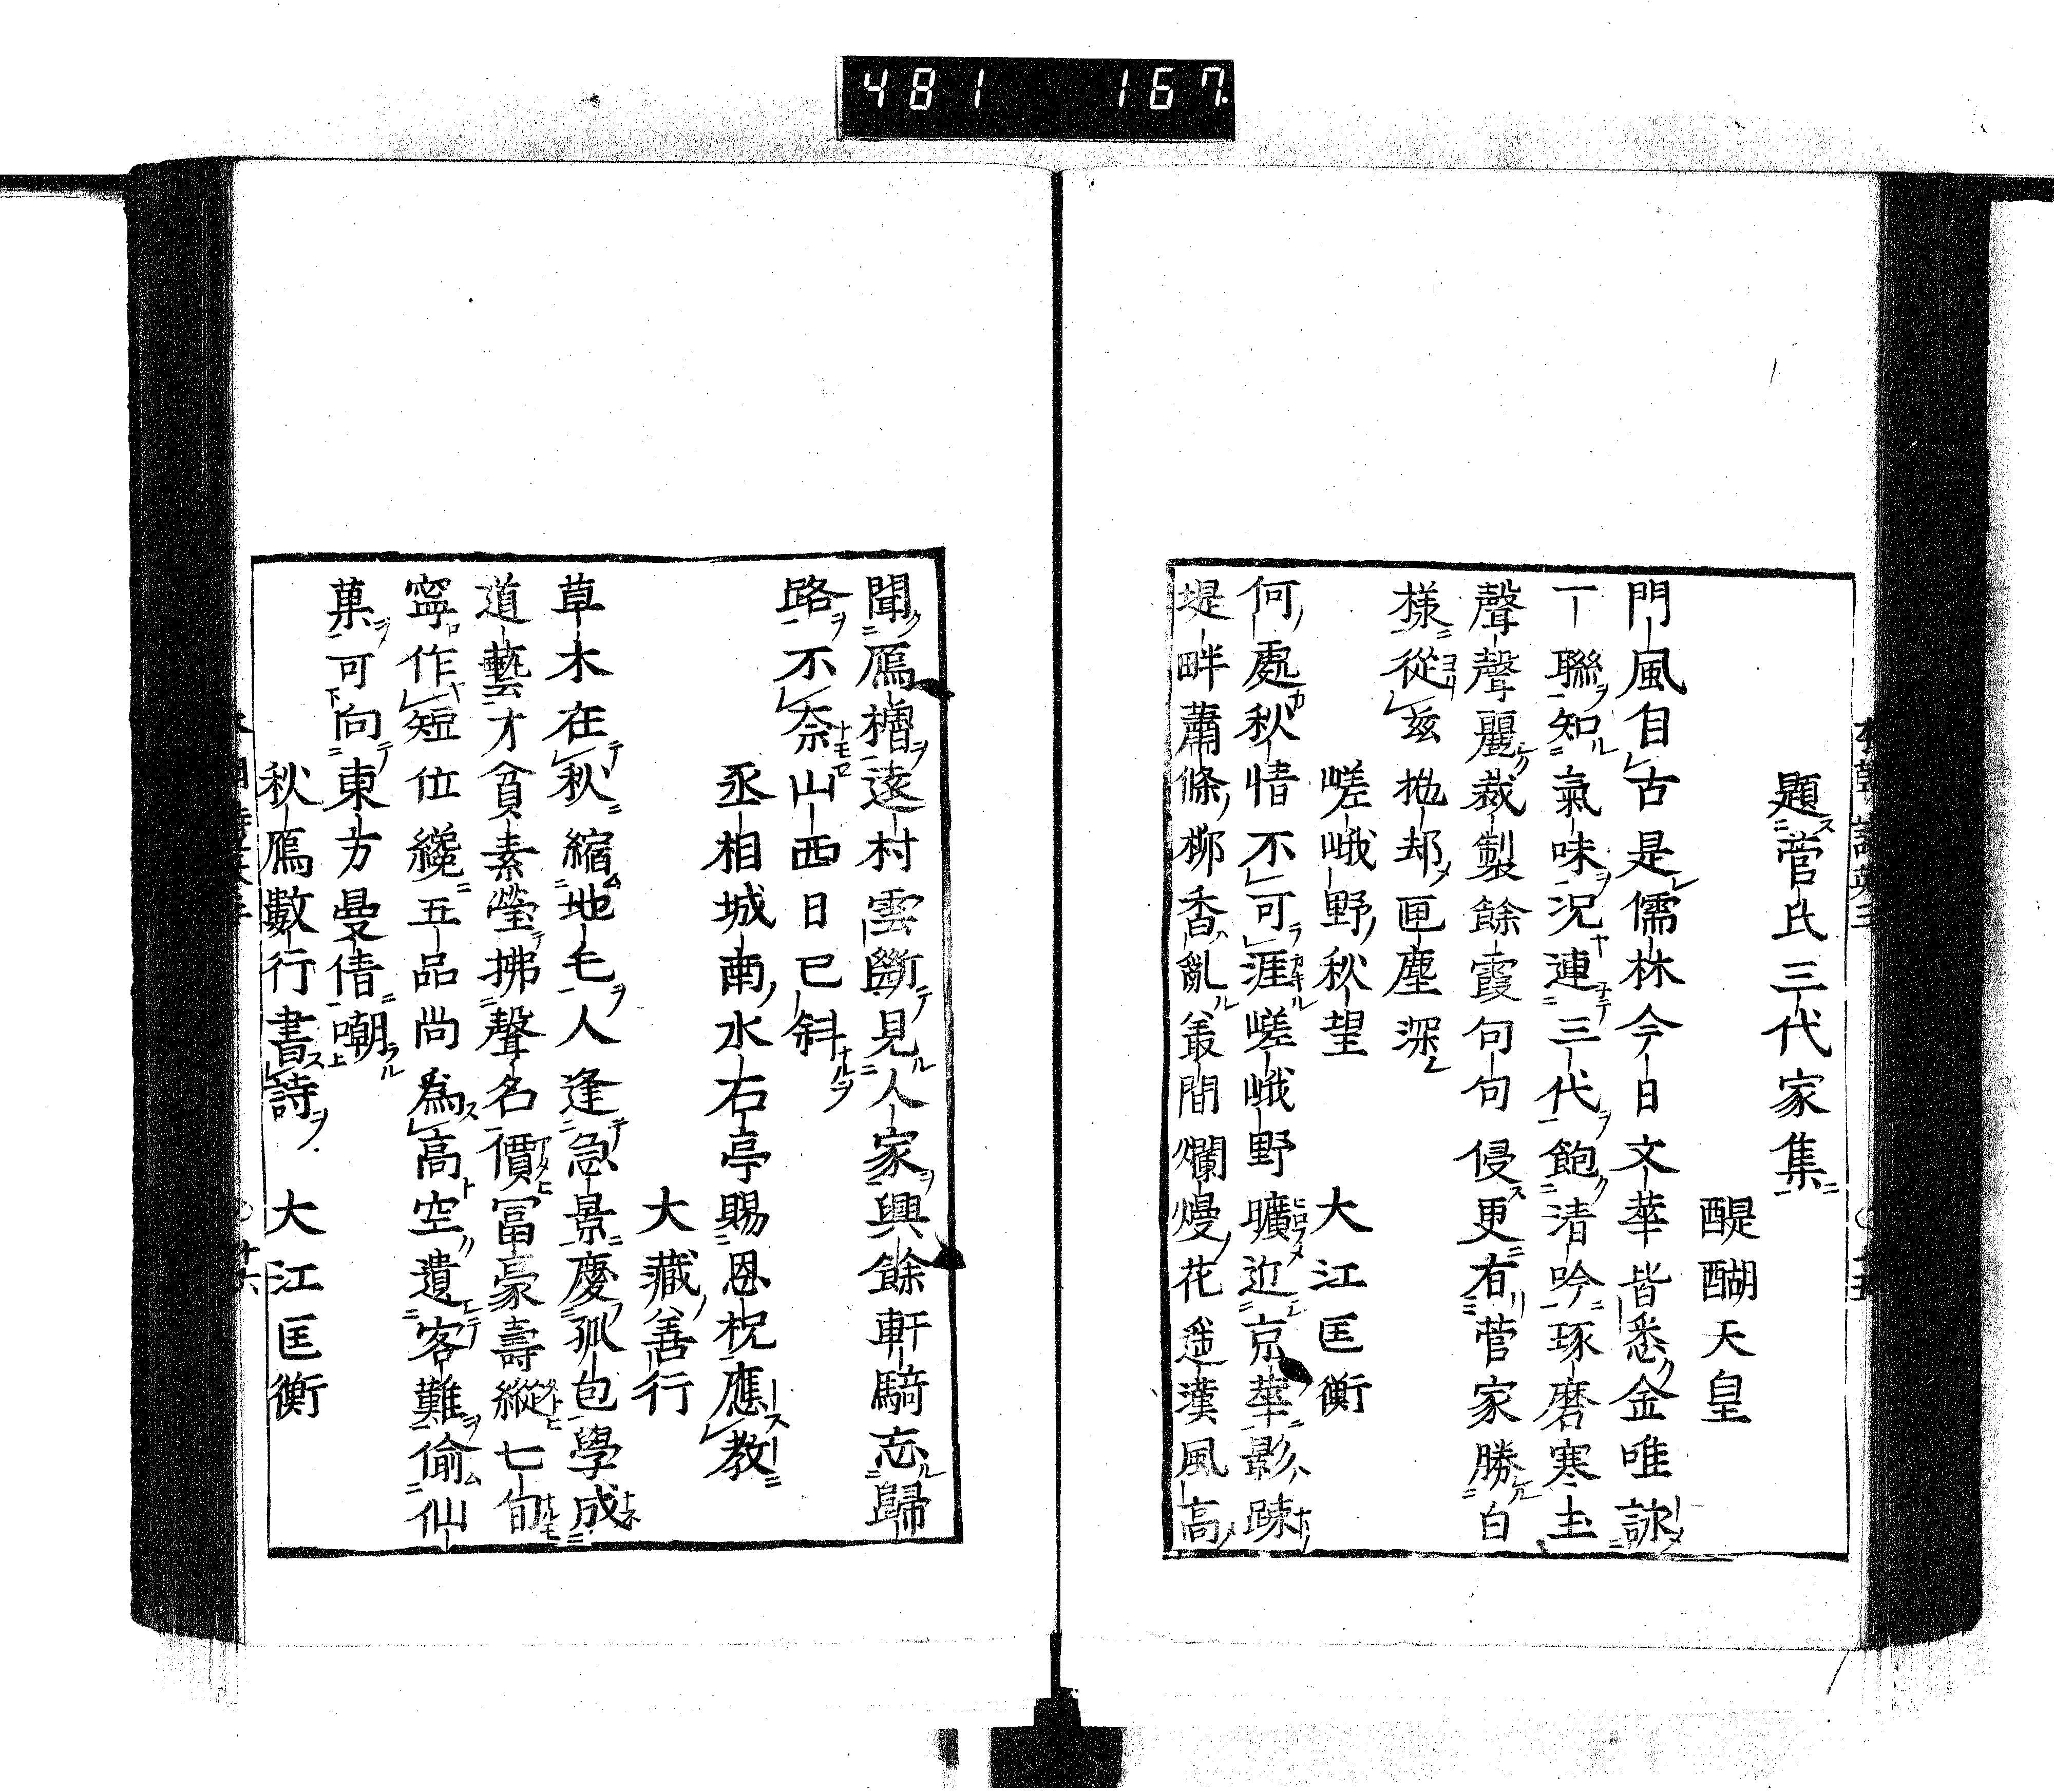 481 167
題菅氏三代家集
醍醐天皇
門風自古是儒林今日文華皆悉金唯詠
一聯知氣味況連三代飽清吟琢磨寒玉
聲聲麗裁製餘霞句句侵更有菅家勝白
樣從茲抛却匣塵深
嵯峨野秋望 大江匡衡
何處秋情不可涯嵯峨野曠近京華影踈
堤畔蕭條柳香亂叢間爛熳花遥漢風高
聞鴈櫓遠村雲斷見人家興餘軒騎忘歸
路不奈山西日已斜
丞相城南水石亭賜恩枕應教
大藏善行
草木在秋縮地毛人逢急景慶孤包學成
道藝才貧素瑩拂聲名價冨豪壽縱七旬
寧作短位纔五品尚爲高空遺客難偷仙
菓可向東方曼倩嘲
秋鴈數行書詩 大江匡衡